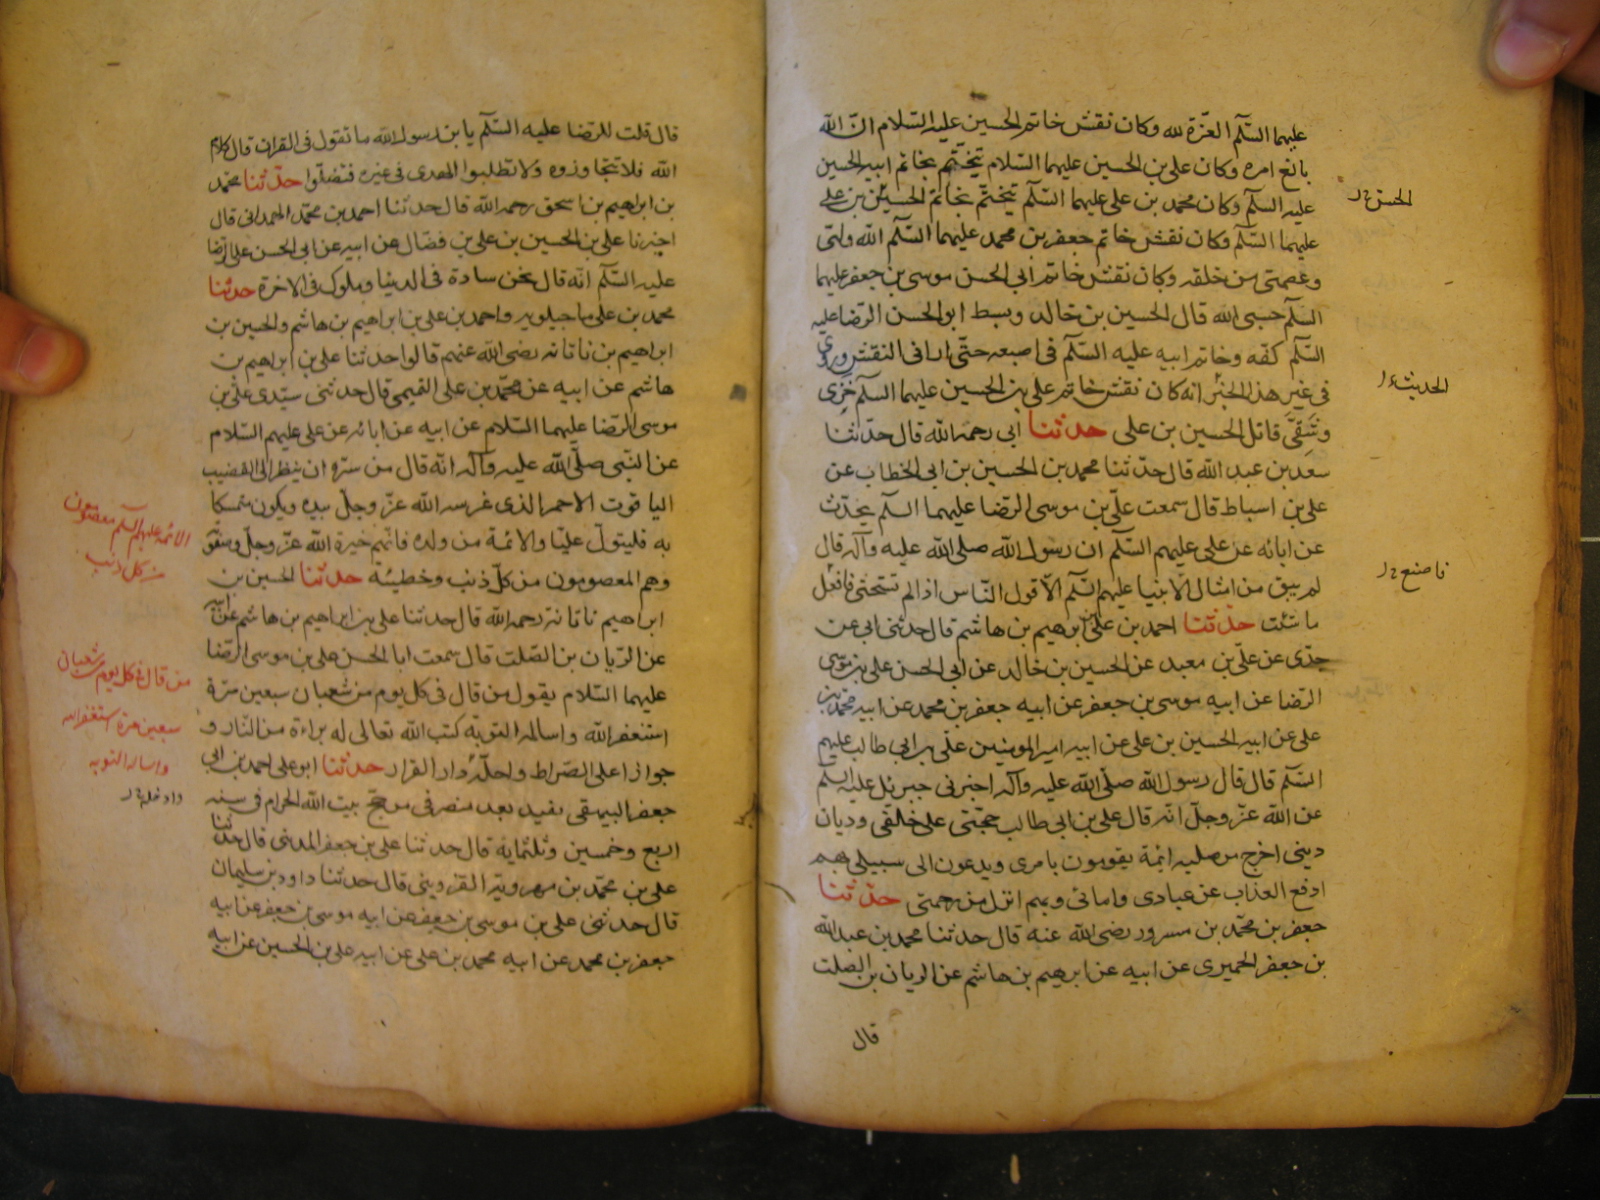 عليهما السّلم العزّة لله وكان نقش خاتم الحسين عليه السّلام انّ الله
بالغ امره وكان علي بن الحسين عليهما السّلام يتختّم بخاتم ابيه الحسين
عليه السلم وكان محمد بن علي عليهما السّلم يتختّم بخاتم الحسين بن علي
الحسن خ ل
عليهما السّلم وكان نقش خاتم جعفر بن محمد عليهما السّلم الله وليّي
وعصمتي من خلقه وكان نقش خاتم ابي الحسن موسى بن جعفر عليهما
السّلم حسبي الله قال الحسين بن خالد وبسط ابو الحسن الرضا عليه
السّلم كفّه وخاتم ابيه عليه السّلم في اصبعه حتّى اراني النقش وروي
في غير هذا الخبر انه كان نقش خاتم علي بن الحسين عليهما السلم خزي
الحديث خ ل
وشقي قاتل الحسين بن علي حدثنا ابي رحمه الله قال حدّثنا
سعد بن عبد الله قال حدّثنا محمد بن الحسين بن ابي الخطاب عن
علي بن اسباط قال سمعت علي بن موسى الرضا عليهما السلم يحدّث
عن ابائه عن علي عليهم السّلم ان رسول الله صلى الله عليه وآله قال
لم يبق من امثال الانبيا عليهم السّلم الّا قول النّاس اذا لم تستحي فافعل
فاصنع خ ل
ما شئت حدّثنا احمد بن علي بن ابرهيم بن هاشم قال حدثني ابي عن
جدّي عن علي بن معبد عن الحسين بن خالد عن ابي الحسن علي بن موسى
الرضا عن ابيه موسى بن جعفر عن ابيه جعفر بن محمد عن ابيه محمد بن
علي عن ابيه الحسين بن علي عن ابيه امير المومنين علي بن ابي طالب عليهم
السّلم قال قال رسول الله صلّى الله عليه وآله اخبرني جبرئل عليه السلم
عن الله عزّ وجلّ انّه قال علي بن ابي طالب حجّتي على خلقي وديان
ديني اخرج من صلبه ائمة يقومون بامري ويدعون الى سبيلي بهم
ادفع العذاب عن عبادي وامائي وبهم انزل من رحمتي حدّثنا
جعفر بن محمّد بن مسرور رضي الله عنه قال حدثنا محمد بن عبد الله
بن جعفر الحميري عن ابيه عن ابرهيم بن هاشم عن الريان بن الصلت
قال
قال قلت للرضا عليه السّلم يا بن رسول الله ما تقول في القران قال كلام
الله فلا تتجاوزوه ولا تطلبوا الهدى في غيره فتضلّوا حدّثنا محمّد
بن ابراهيم بن اسحق رحمه الله قال حدثنا احمد بن محمّد الهمداني قال
اخبرنا علي بن الحسين بن علي بن فضّال عن ابيه عن ابي الحسن علي الرضا
عليه السّلم انّه قال نحن سادة في الدنيا وملوك في الاخرة حدثنا
محمد بن علي ماجيلويه واحمد بن علي بن ابراهيم بن هاشم والحسين بن
ابراهيم بن ناتانه رضي الله عنهم قالوا حدثنا علي بن ابراهيم بن
هاشم عن ابيه عن محمّد بن علي القيمي قال حدثني سيّدي علي بن
موسى الرضا عليهما السّلام عن ابيه عن ابائه عن علي عليهم السّلام
عن النّبي صلّى الله عليه وآله انّه قال من سرّه ان ينظر الى القضيب
الياقوت الاحمر الذي غرسه الله عزّ وجلّ بيده ويكون متمسكا
به فليتولّ عليّا والائمة من ولده فانّهم خيرة الله عزّ وجلّ وصفوته
الائمة عليهم السّلم معصومون
من كل ذنب
وهم المعصومون من كلّ ذنب وخطيئة حدثنا الحسين بن
ابراهيم ناتانة رحمه الله قال حدثنا علي بن ابراهيم بن هاشم عن ابيه
عن الريان بن الصّلت قال سمعت ابا الحسن علي بن موسى الرضا
من قال في كل يوم من شعبان
سبعين مرة استغفر الله
واساله التوبه
عليهما السّلام يقول من قال في كل يوم من شعبان سبعين مرّة
استغفر الله واساله التوبة كتب الله تعالى له براءة من النّار و
جوازا على الصّراط واحلّه دار القرار حدثنا ابو علي احمد بن ابي
وادخله خ ل
جعفر البيهقي بفيد بعد منصرفي من حجّ بيت الله الحرام في سنه
اربع وخمسين وثلثماية قال حدثنا علي بن جعفر المدني قال حدثنا
علي بن محمّد بن مهرويه القزويني قال حدثنا داود بن سليمان
قال حدثني علي بن موسى بن جعفر عن ابيه موسى بن جعفر عن ابيه
جعفر بن محمد عن ابيه محمد بن علي عن ابيه علي بن الحسين عن ابيه